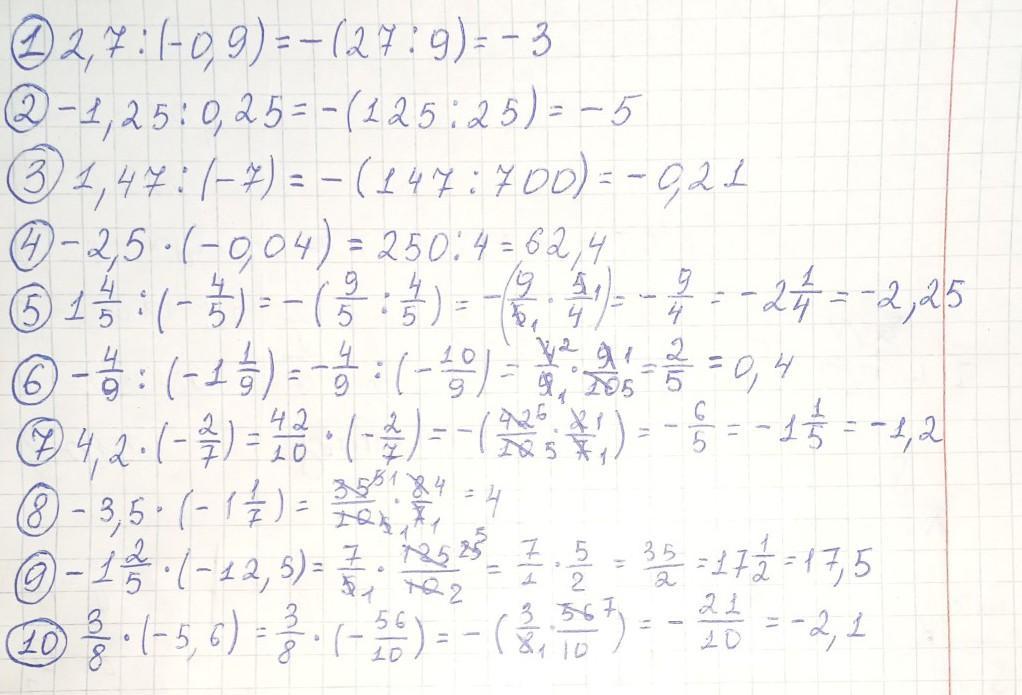 ① 2,7 : (-0,9) = -(27 : 9) = -3
② -1,25 : 0,25 = -(125 : 25) = -5
③ 1,47 : (-7) = -(147 : 700) = -0,21
④ -2,5 · (-0,04) = 250 : 4 = 62,4
⑤ 1 4/5 : (-4/5) = -(9/5 : 4/5) = -(9/5 1 · 5 1/4) = -9/4 = -2 1/4 = -2,25
⑥ -4/9 : (-1 1/9) = -4/9 : (-10/9) = 4 2/9 1 · 9 1/10 5 = 2/5 = 0,4
⑦ 4,2 · (-2/7) = 42/10 · (-2/7) = -(42 6/10 5 · 2 1/7 1) = -6/5 = -1 1/5 = -1,2
⑧ -3,5 · (-1 1/7) = 35 5 1/10 2 1 · 8 4/7 1 = 4
⑨ -1 2/5 · (-12,5) = 7/5 1 · 125 25 5/10 2 = 7/1 · 5/2 = 35/2 = 17 1/2 = 17,5
⑩ 3/8 · (-5,6) = 3/8 · (-56/10) = -(3/8 1 · 56 7/10) = -21/10 = -2,1